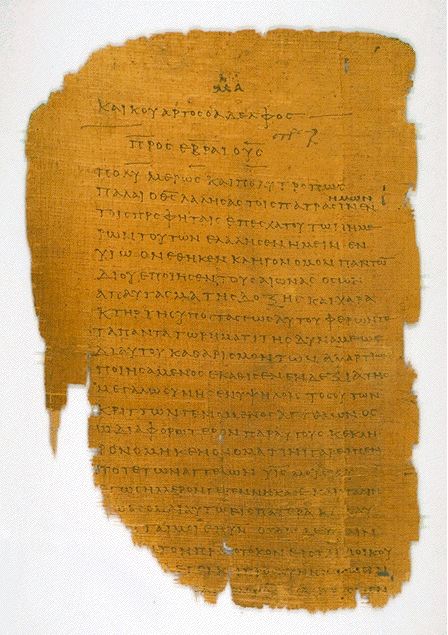 ΜΑ
ΚΑΙ ΚΟΥΑΡΤΟΣ Ο ΑΔΕΛΦΟΣ
ΠΡΟΣ ΕΒΡΑΙΟΥΣ
ΠΟΛΥΜΕΡΩΣ ΚΑΙ ΠΟΛΥΤΡΟΠΩΣ
ΗΜΩΝ
ΠΑΛΑΙ Ο ΘΣ ΛΑΛΗΣΑΣ ΤΟΙΣ ΠΑΤΡΑΣΙΝ ΕΝ
ΤΟΙΣ ΠΡΟΦΗΤΑΙΣ ΕΠ ΕΣΧΑΤΟΥ ΤΩΝ ΗΜΕ
ΡΩΝ ΤΟΥΤΩΝ ΕΛΑΛΗΣΕΝ ΗΜΕΙΝ ΕΝ
ΥΙΩ ΟΝ ΕΘΗΚΕΝ ΚΛΗΡΟΝΟΜΟΝ ΠΑΝΤΩ̅
ΔΙ ΟΥ ΕΠΟΙΗΣΕΝ ΤΟΥΣ ΑΙΩΝΑΣ ΟΣ ΩΝ
ΑΠΑΥΓΑΣΜΑ ΤΗΣ ΔΟΞΗΣ ΚΑΙ ΧΑΡΑ
ΚΤΗΡ ΤΗΣ ΥΠΟΣΤΑΣΕΩΣ ΑΥΤΟΥ ΦΕΡΩΝ ΤΕ
ΤΑ ΠΑΝΤΑ ΤΩ ΡΗΜΑΤΙ ΤΗΣ ΔΥΝΑΜΕΩΣ
ΔΙ ΑΥΤΟΥ ΚΑΘΑΡΙΣΜΟΝ ΤΩΝ ΑΜΑΡΤΙΩ̅
ΠΟΙΗΣΑΜΕΝΟΣ ΕΚΑΘΙΣΕΝ ΕΝ ΔΕΞΙΑ ΤΗΣ
ΜΕΓΑΛΩΣΥΝΗΣ ΕΝ ΥΨΗΛΟΙΣ ΤΟΣΟΥΤΩ
ΚΡΙΤΤΩΝ ΓΕΝΟΜΕΝΟΣ ΑΓΓΕΛΩΝ ΟΣ
Ω ΔΙΑΦΟΡΩΤΕΡΟΝ ΠΑΡ ΑΥΤΟΥΣ ΚΕΚΛΗ
ΡΟΝΟΜΗΚΕΝ ΟΝΟΜΑ ΤΙΝΙ ΓΑΡ ΕΙΠΕΝ
ΠΟΤΕ ΤΩΝ ΑΓΓΕΛΩΝ ΥΙΣ ΜΟΥ
ΣΗΜΕΡΟΝ ΓΕΓΕΝΝΗΚΑ ΣΕ ΚΑΙ ΠΑΛΙΝ
ΑΥΤΩ ΕΙΣ ΠΑΤΕΡΑ ΚΑΙ